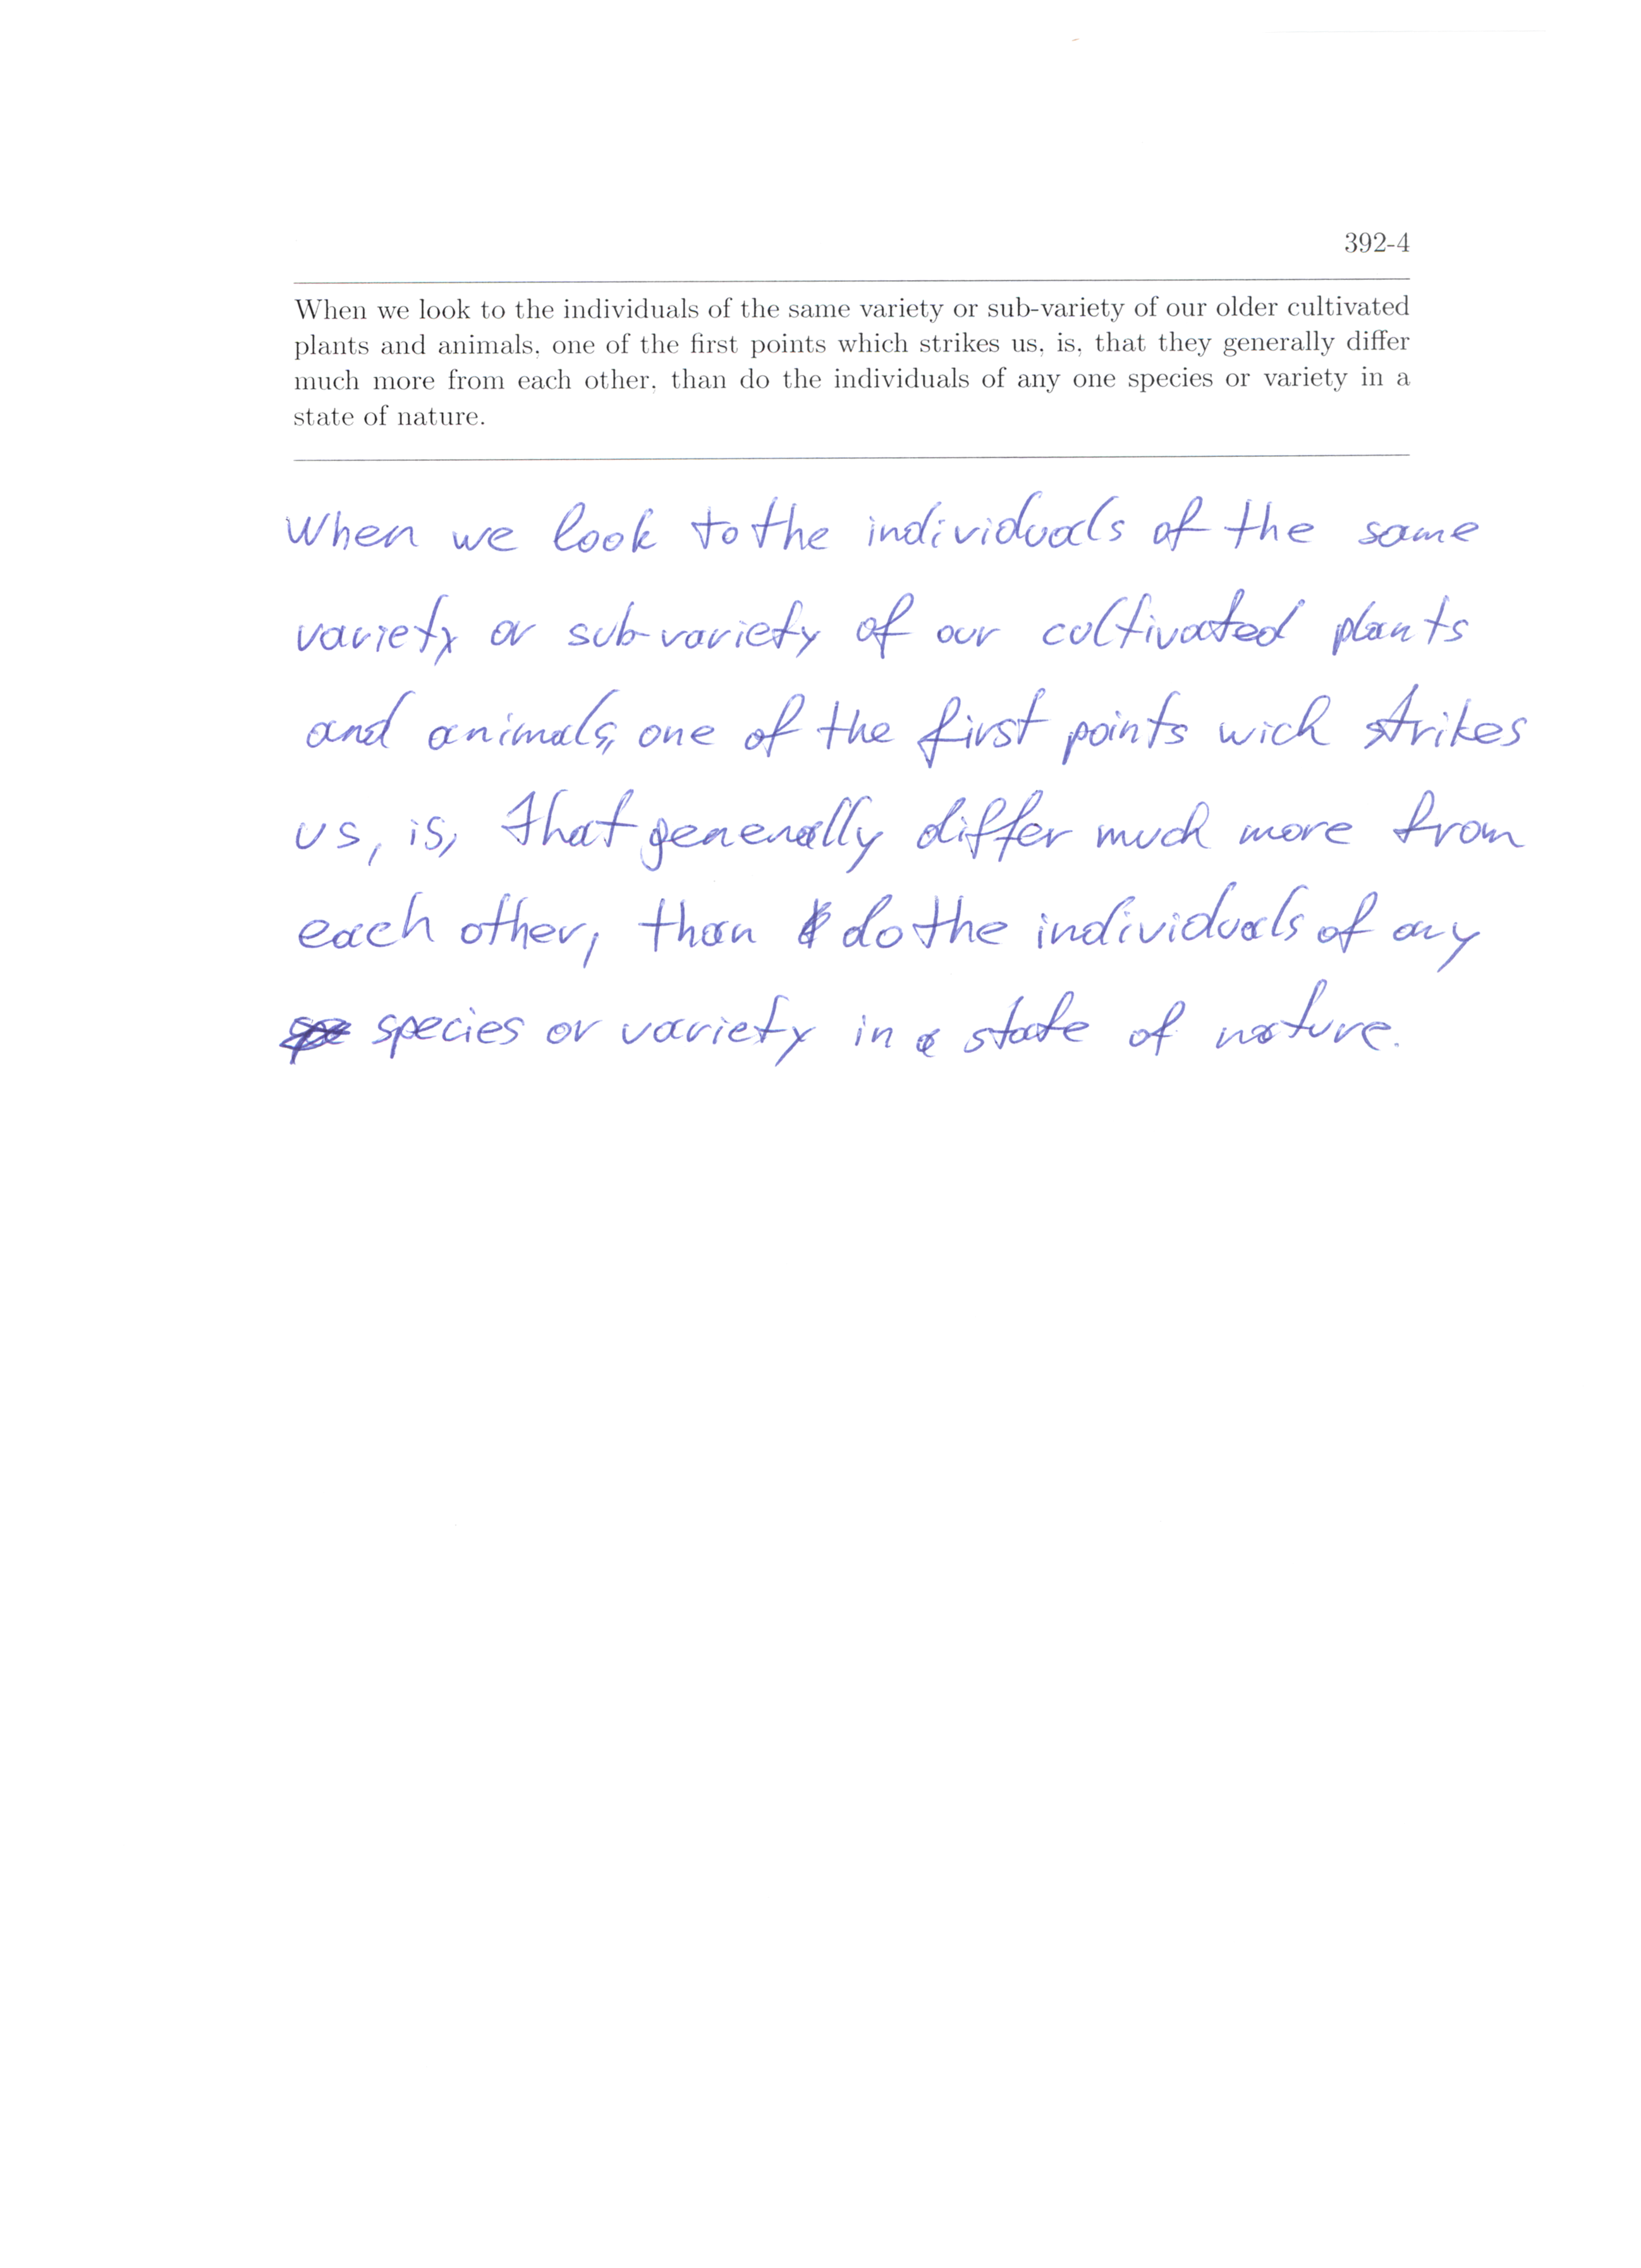 392-4
When we look to the individuals of the same variety or sub-variety of our older cultivated
plants and animals, one of the first points which strikes us, is, that they generally differ
much more from each other, than do the individuals of any one species or variety in a
state of nature.
When we look to the individuals of the same
variety or sub-variety of our cultivated plants
and animals, one of the first points wich strikes
us, is, that generally differ much more from
each other, than do the individuals of any
species or variety in a state of nature.